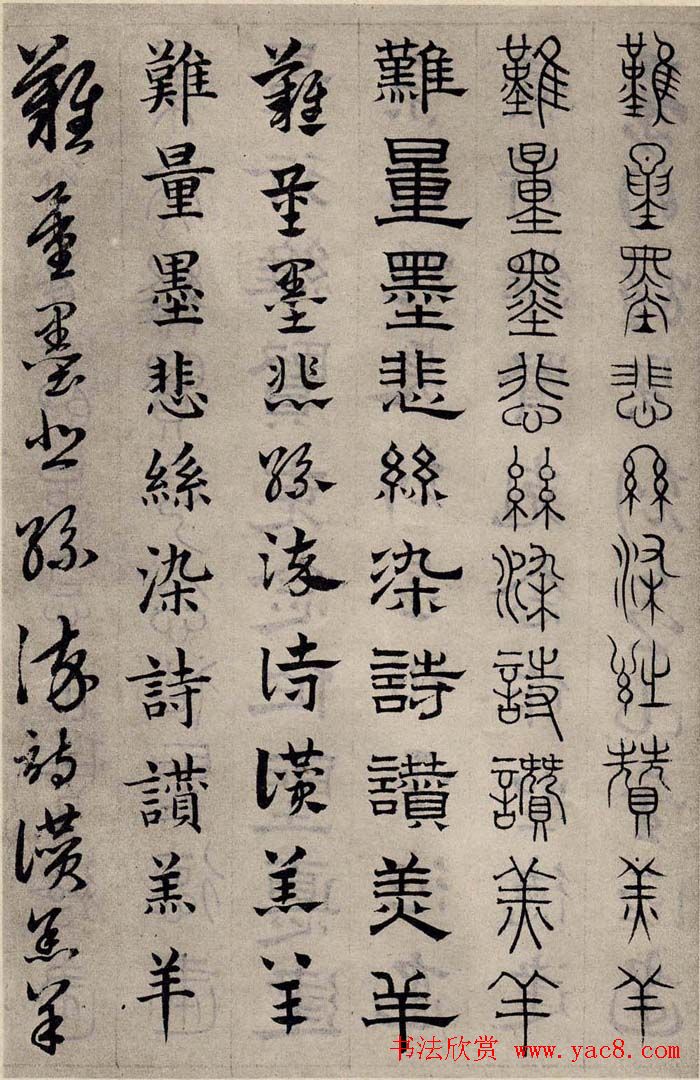 難量墨悲絲染詩讚羔羊
難量墨悲絲染詩讚羔羊
難量墨悲絲染詩讚羔羊
難量墨悲絲染詩讚羔羊
難量墨悲絲染詩讚羔羊
難量墨悲絲染詩讚羔羊
书法欣赏 www.yac8.com